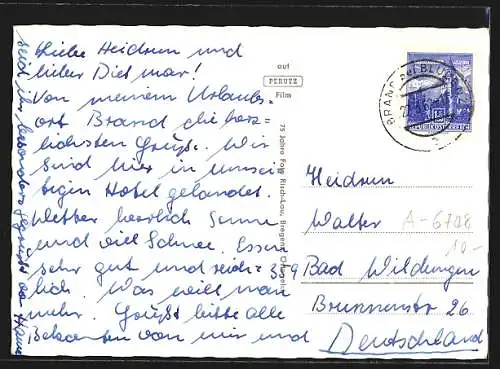 Liebe Heidrun und
lieber Dietmar!
Von meinem Urlaubs-
ort Brand die herz=
lichsten Grüße. Wir
sind hier in
Hotel gelandet.
Wetter herrlich Sonne
und viel Schnee. Essen
sehr gut und reich=
lich. Was will man
mehr. Grüßt bitte alle
Bekannten von mir und
seid ihr besonders gegrüßt von
auf
PERUTZ
Film
75 Jahre Foto Risch-Lau, Bregenz
BRAND bei BLUDENZ
REPUBLIK ÖSTERREICH
Heidrun
Walter
A-6708
10.-
359
Bad Wildungen
Brunnenstr 26
Deutschland